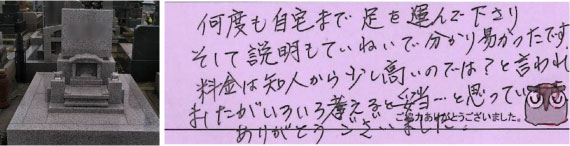 何度も自宅まで足を運んで下さり
そして説明もていねいで分かり易かったです。
料金は知人から少し高いのでは?と言われ
ましたがいろいろ考えると妥当…と思ってい
ありがとうございました。
ご協力ありがとうございました。